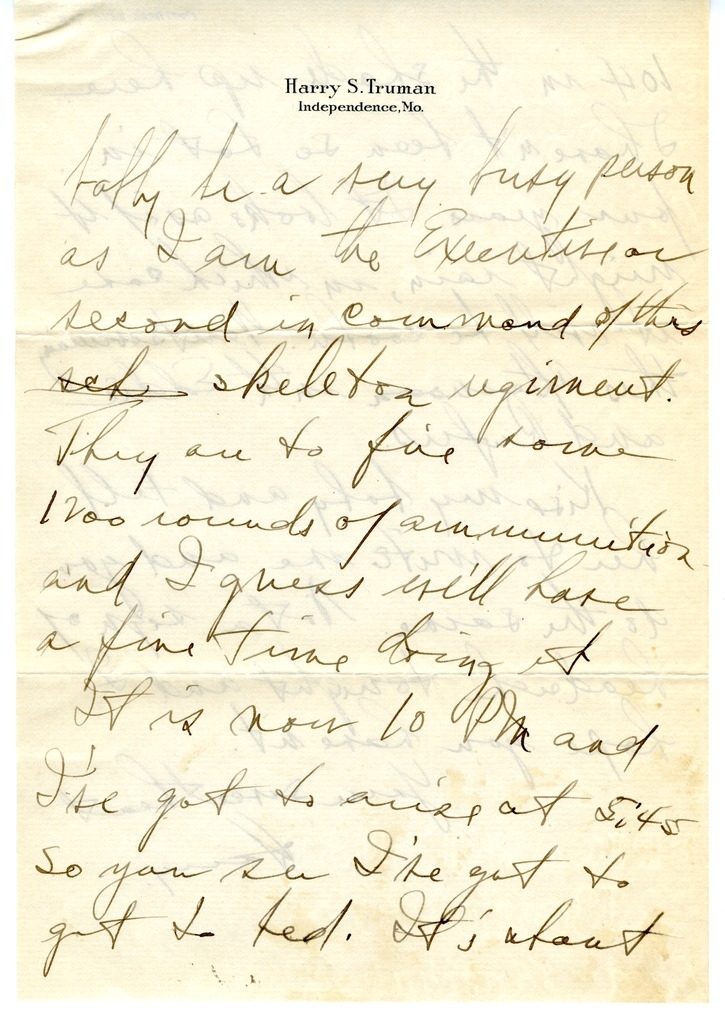 Harry S. Truman
Independence, Mo.
bably be a very busy person
as I am the Executive or
second in command of this
sch skeleton regiment.
They are to fire some
1200 rounds of ammunition
and I guess we'll have
a fine time doing it
It is now 10 PM and
I've got to arise at 5:45
so you see I've got to
get to bed. It's about